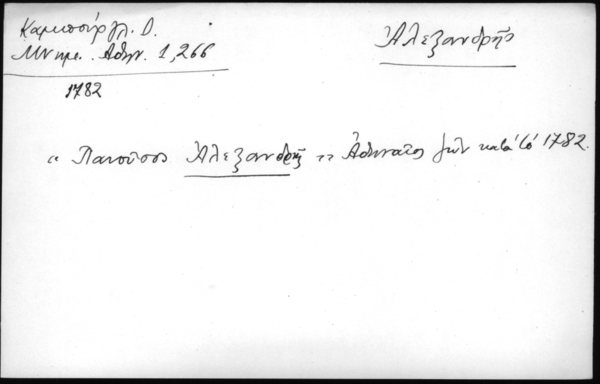 Καμπούρογλ. Δ.
Μνημ. Αθην. 1,266
Ἀλεξανδρῆς
1782
« Πανοῦσος Ἀλεξανδρῆς » Ἀθηναῖος ζῶν κατὰ τό 1782.